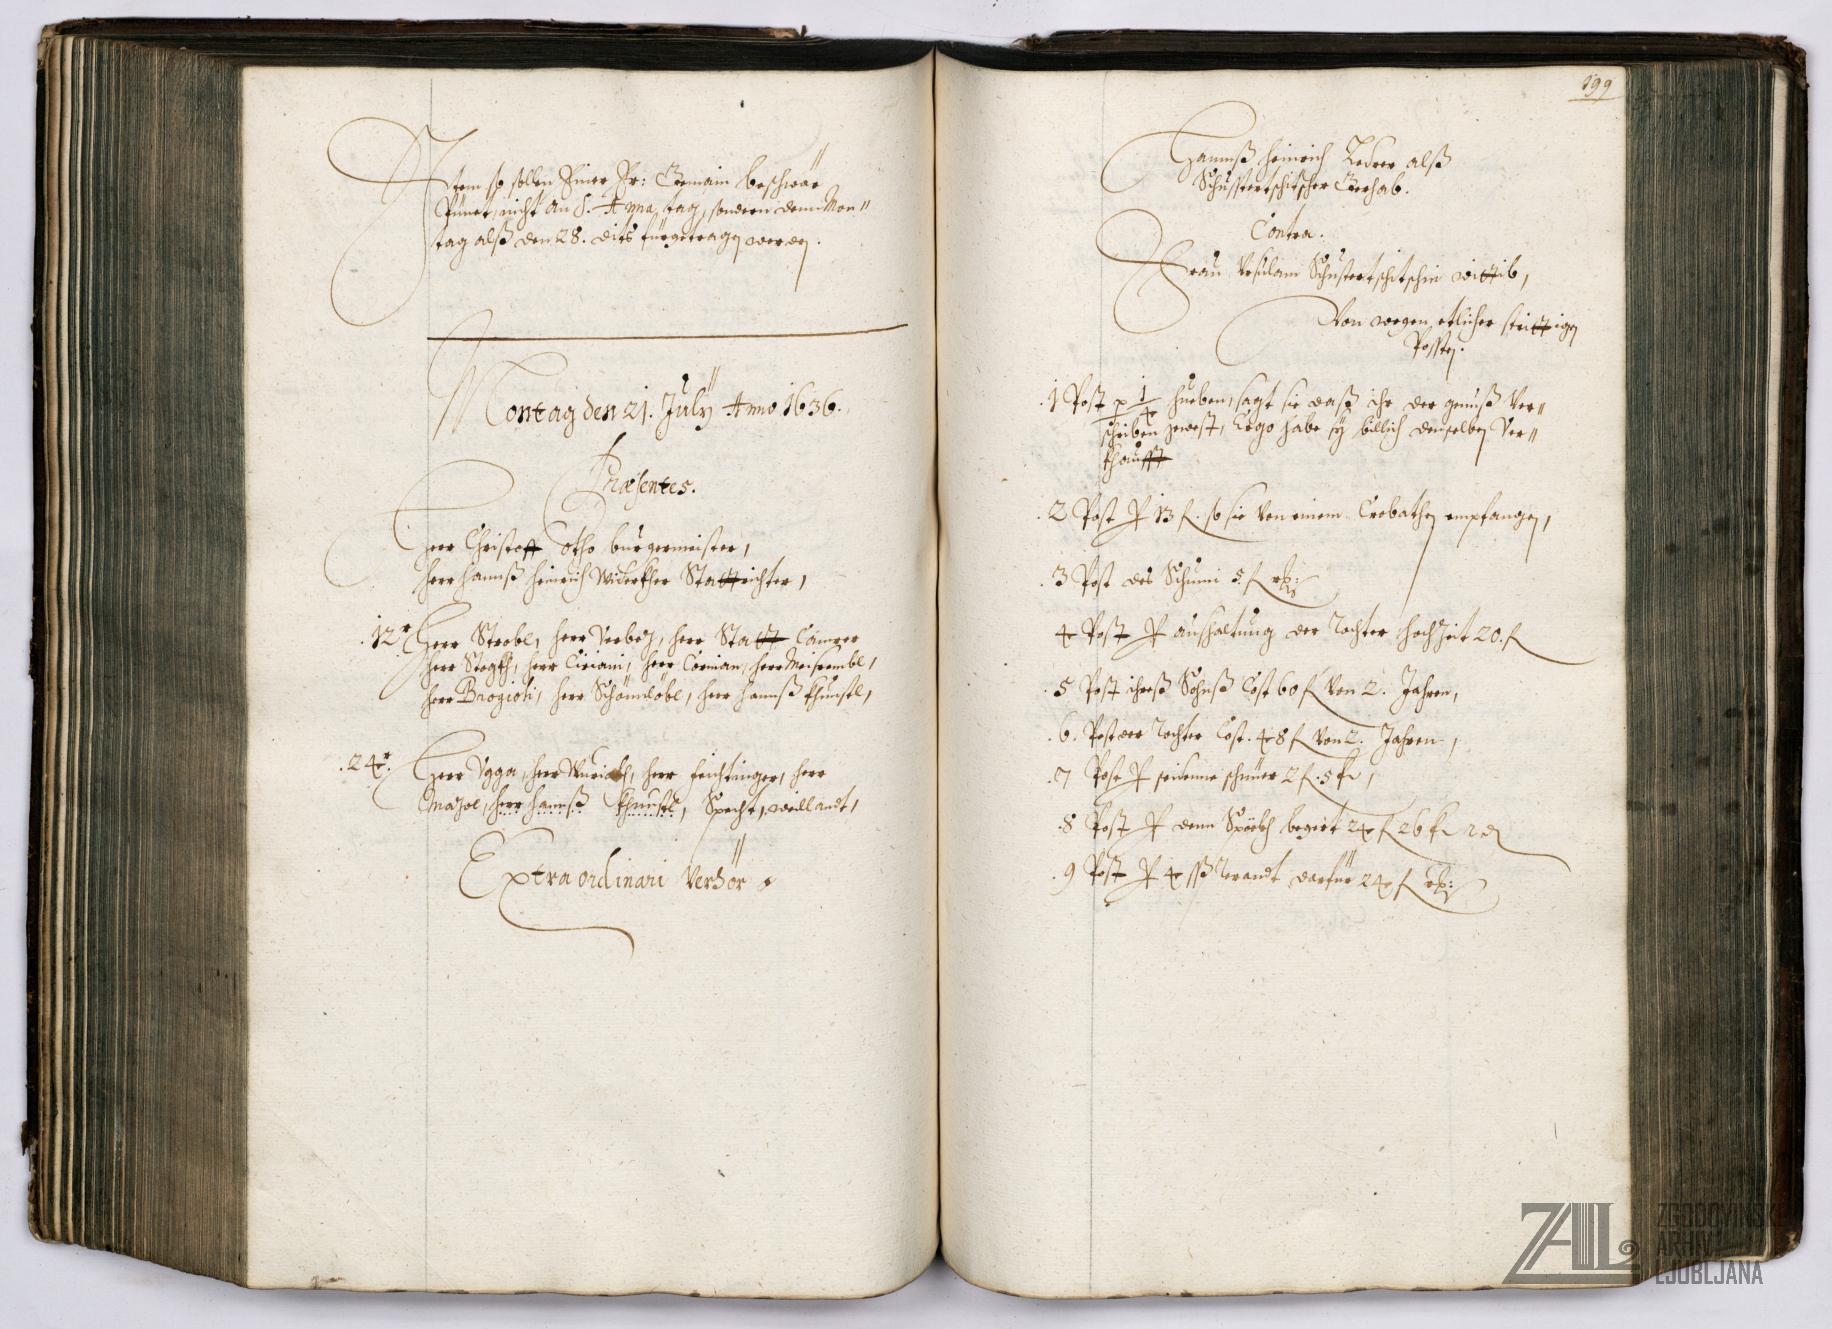 Item so sollen Einer Er: Gemain beschwär
Punct, nicht an S. Anna tag, sondern den Mon"
tag alß den 28. dits fürgetragen werden.
Montag den 21. July Anno 1636.
Præsentes.
Herr Christoff Otho burgermeister,
herr Hannß Heinrich Widerkher Stattrichter,
12r. Herr Strobl, herr Verbez, herr Statt Camrer
herr herr Ciriani, herr Corman,
herr Brogioli, herr Schönnlöbl, herr Hannß Khunstl,
24r. Herr Ygga, herr herr Feichtinger, herr
herr Hannß Khunstl, Specht, weillandt,
Extraordinari Verhör
199
Hannß Heinrich Ledrer alß
Schusstertschitscher Gerhab.
Contra.
Frau Ursulam Schustertschitschin wittib,
Von wegen etlicher strittigen
Posten.
1 Post p 1/4 hueben, sagt sie daß ihr der genuß Ver"
schriben gewest, Ergo habe sy billich denselben Ver"
khaufft
2 Post P 13 f. so sie von einem Crobathen empfangen,
3 Post des Schuini 5 f
4 Post P aushaltung der Tochter Hochzeit 20. f
5 Post ihreß Sohnß Cost 60 f von 2. Jahren,
6. Post der Tochter Cost. 48 f von 2. Jahren,
7 Post P seidenne schnüer 2 f. 5 kr,
8 Post P denn begert 24 f 26 kr 2 d
9 Post P 4 darfür 24 f
ZAL
ZGODOVINSKI
ARHIV
LJUBLJANA